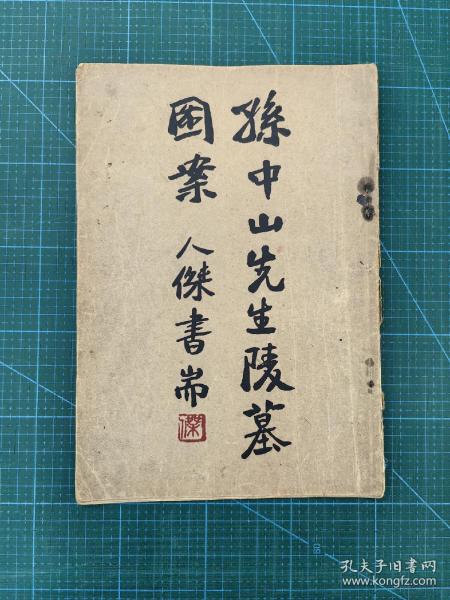 孫中山先生陵墓
图案
人傑書耑
傑
孔夫子旧书网
www.kongfz.com